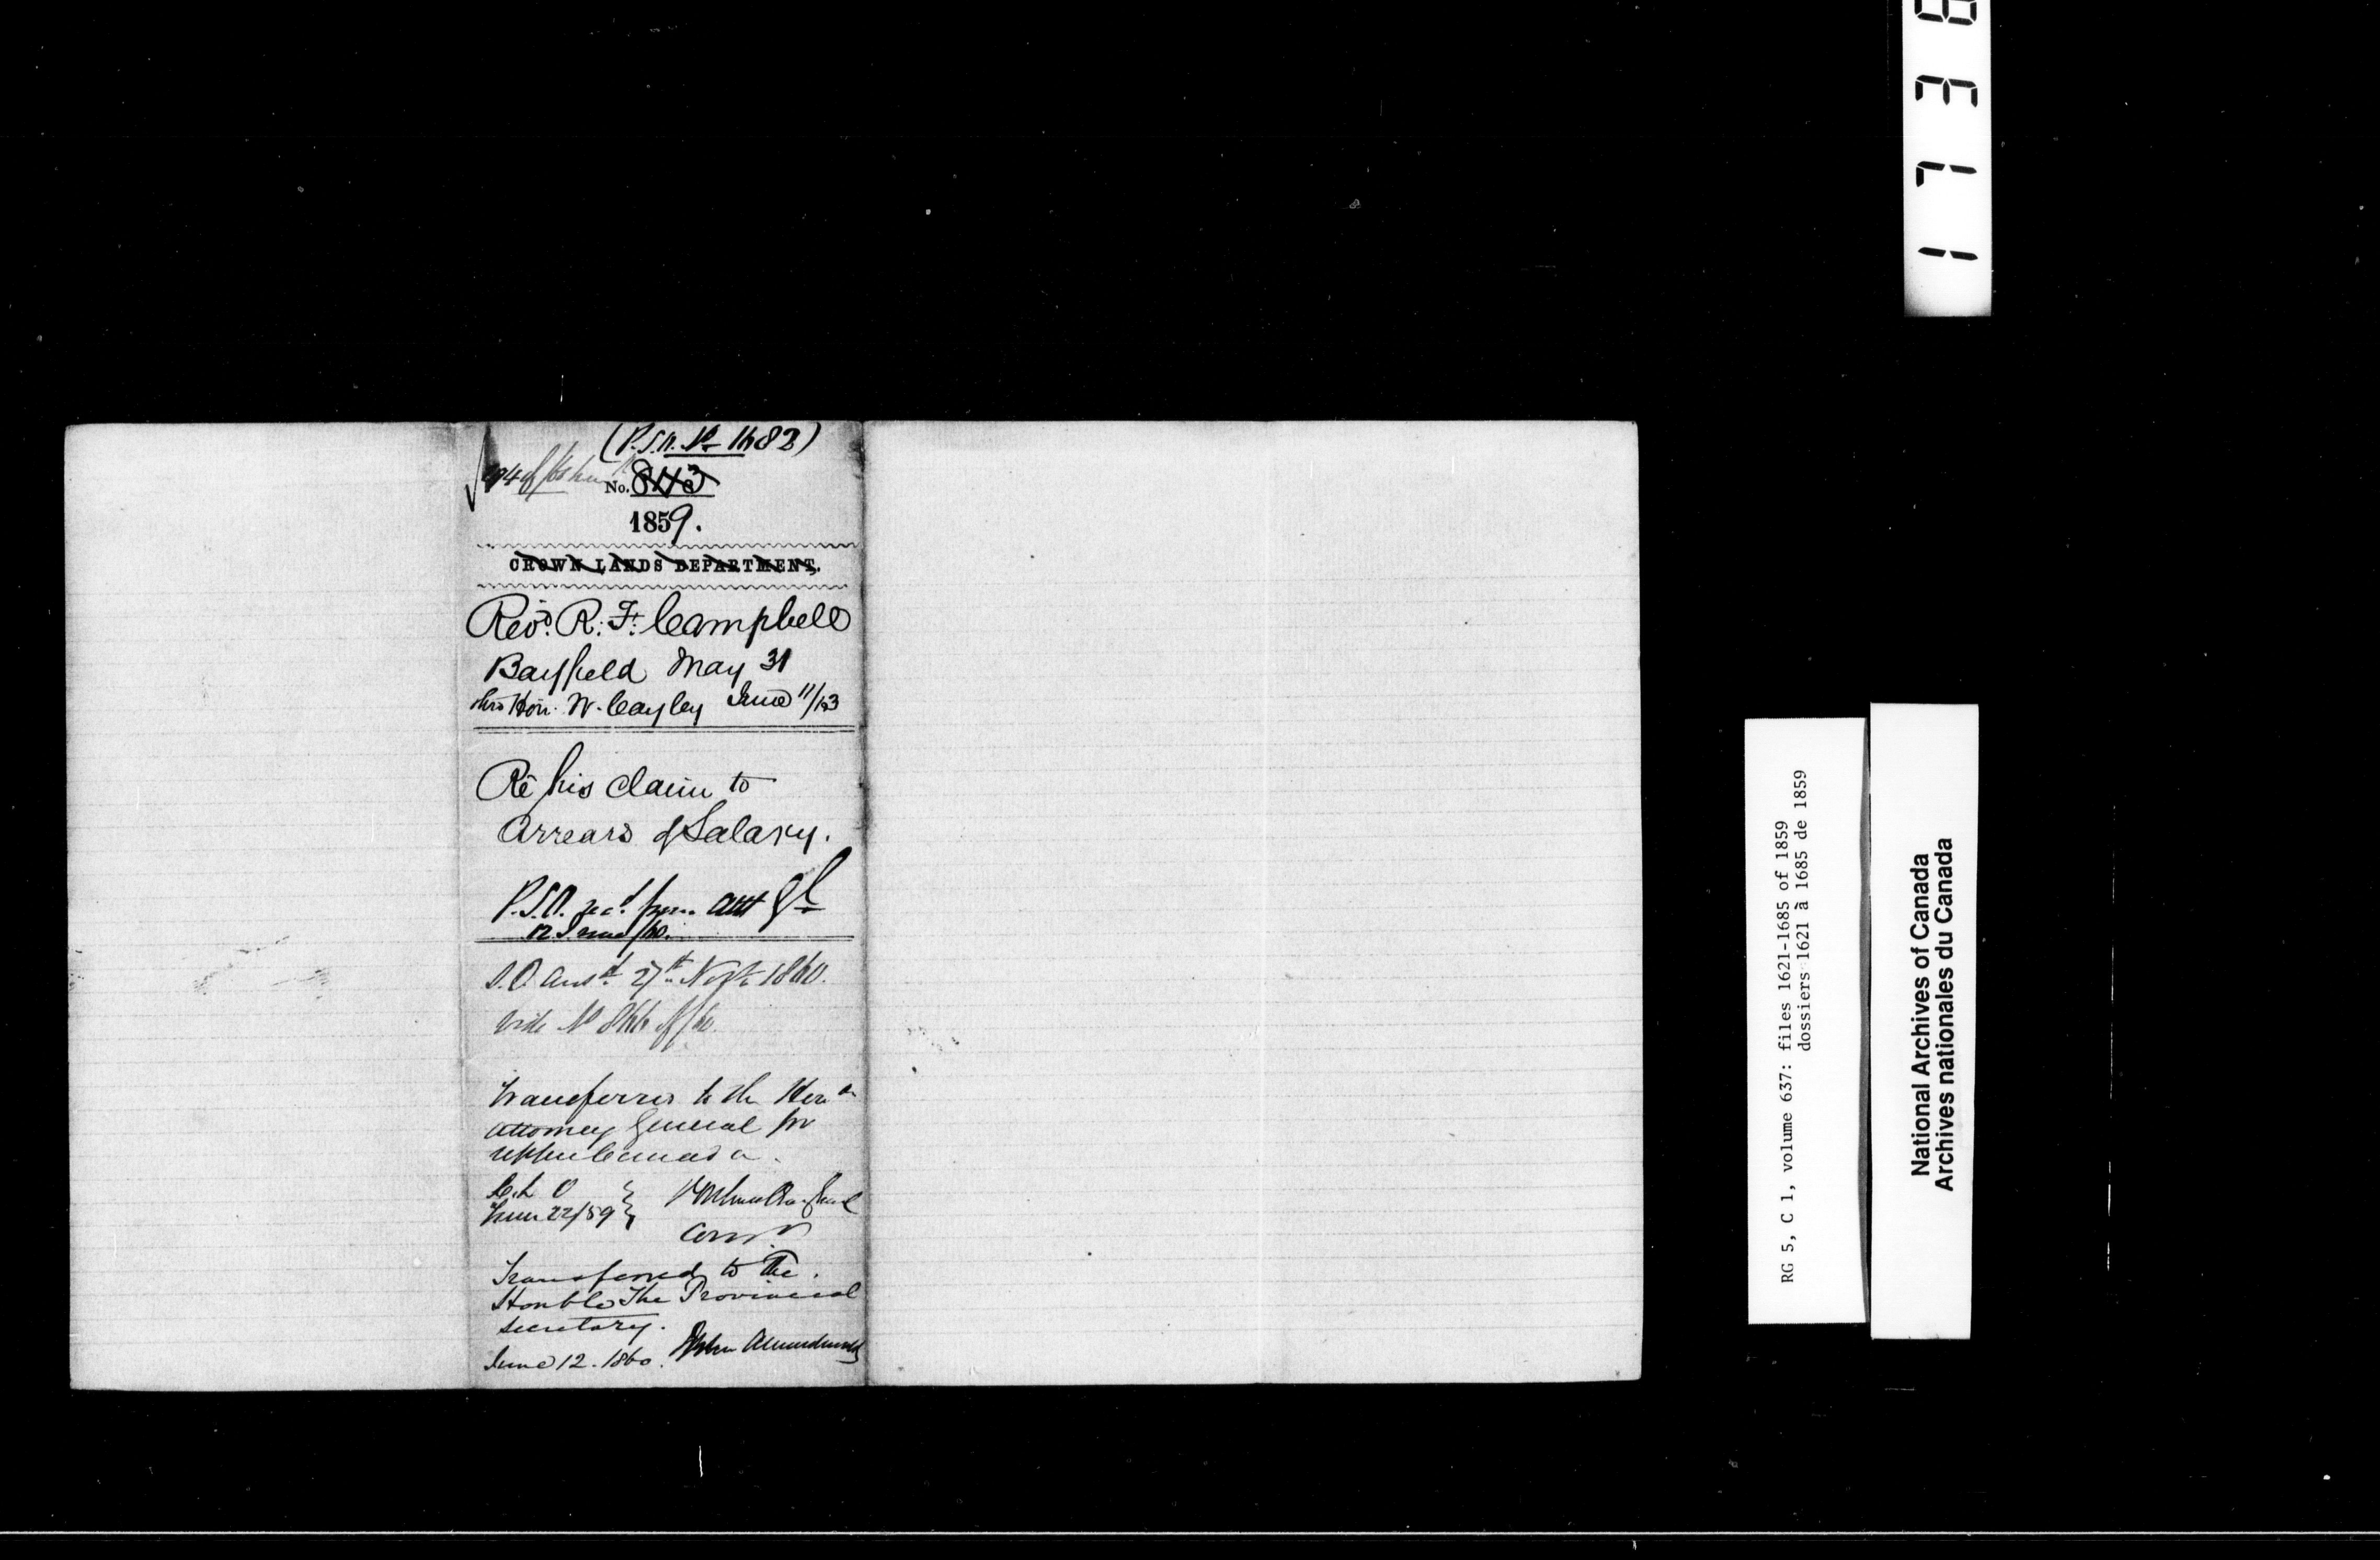 (P.S.O. No 1682)
No. 843
1859.
CROWN LANDS DEPARTMENT.
Revd. R. F. Campbell
Bayfield May 31
thro Hon. W. Cayley June 11/13
Re his claim to
Arrears of Salary.
P.S.O. recd. from Att Gl
12 June /60.
S.O. ansd 27th Novr 1860.
vide No 866 of /60.
Transferred to the Honble
Attorney General for
Upper Canada.
C. L. O
June 22/59
Comr
Transferred to the
Honble The Provincial
Secretary.
June 12. 1860.
RG 5, C 1, volume 637: files 1621-1685 of 1859
dossiers 1621 à 1685 de 1859
National Archives of Canada
Archives nationales du Canada
1738